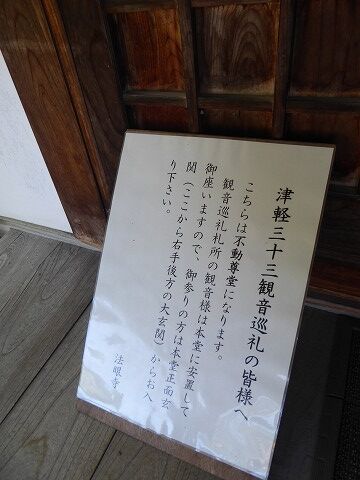 津軽三十三観音巡礼の皆様へ
こちらは不動尊堂になります。
観音巡礼札所の観音様は本堂に安置して
御座いますので、御参りの方は本堂正面玄
関（ここから右手後方の大玄関）からお入
り下さい。
法眼寺